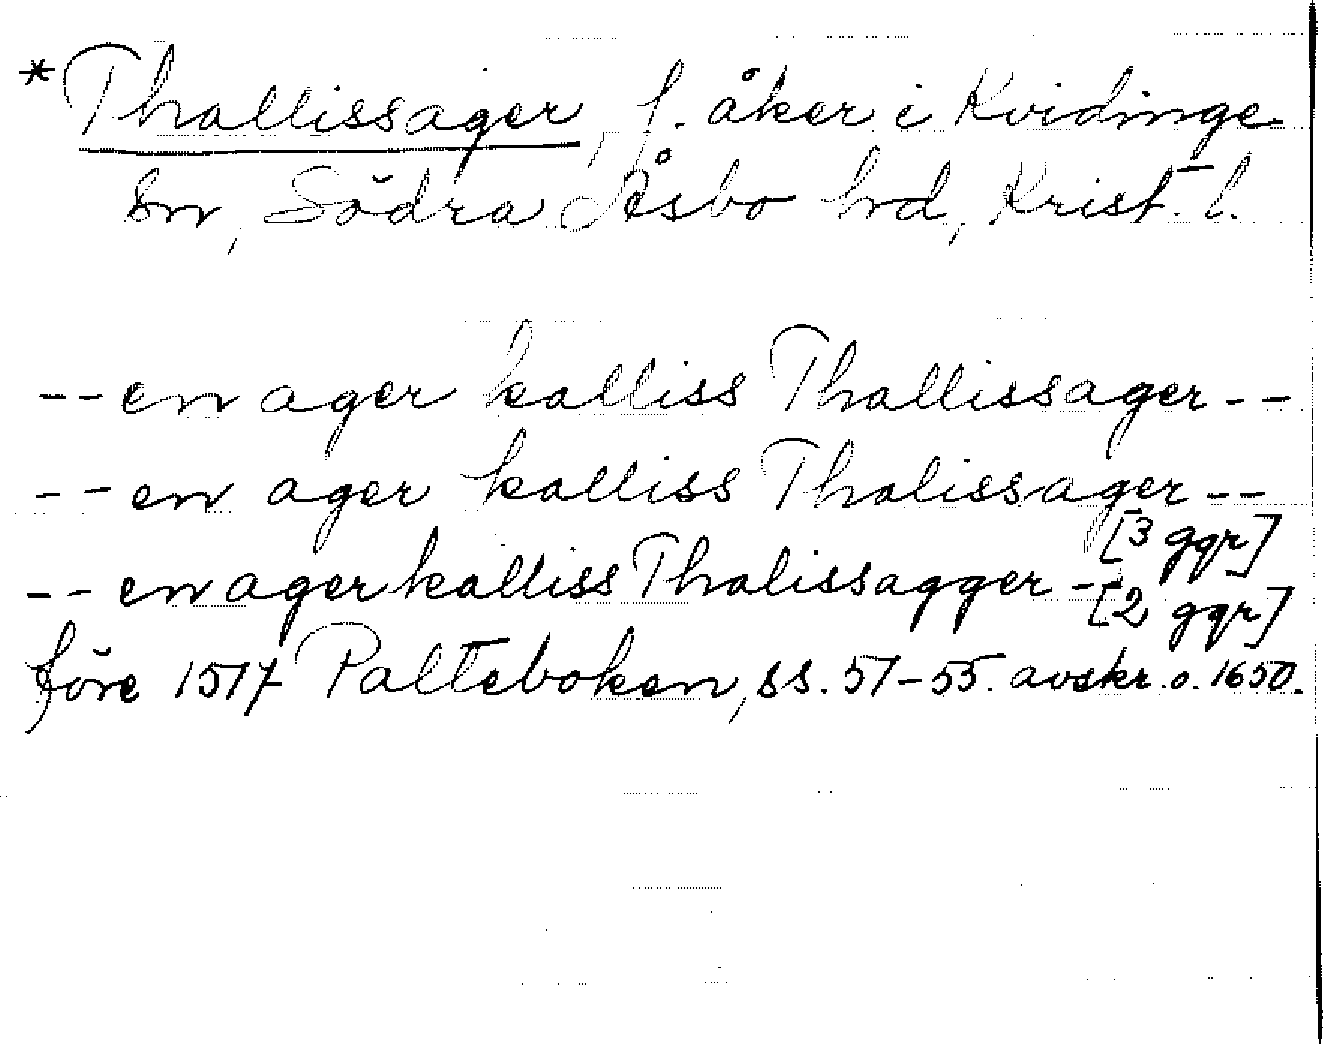 *Thallissager, f. åker i Kvidinge
sn, Södra Åsbo hrd, Krist. l.
-- en ager kalliss Thallissager --
-- en ager kalliss Thalissager --
[3 ggr]
-- en ager kalliss Thalissagger --
[2 ggr]
före 1517 Palteboken, ss. 51-55. avskr. o. 1650.